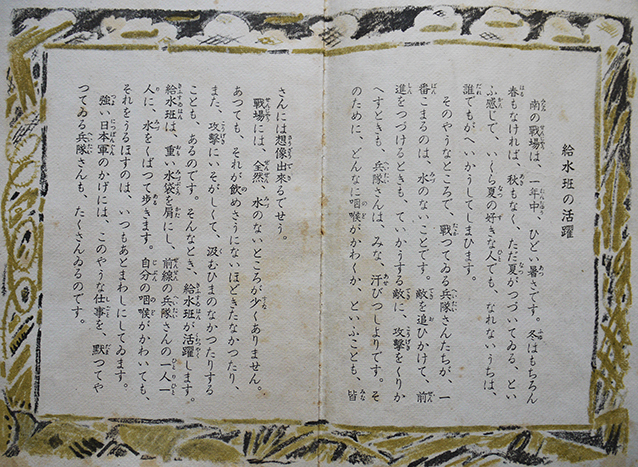 給水班の活躍
南の戦場は、一年中、ひどい暑さです。冬はもちろん
春もなければ、秋もなく、ただ夏がつづいてゐる、とい
ふ感じで、いくら夏の好きな人でも、なれないうちは、
誰でもがへいかうしてしまひます。
そのやうなところで、戦つてゐる兵隊さんたちが、一
番こまるのは、水のないことです。敵を追ひかけて、前
進をつづけるときも、ていかうする敵に、攻撃をくりか
へすときも、兵隊さんは、みな、汗びつしよりです。そ
のために、どんなに咽喉がかわくか、といふことも、皆
さんには想像出来るでせう。
戦場には、全然、水のないところが少くありません。
あつても、それが飲めさうにないほどきたなかつたり、
また、攻撃にいそがしくて、汲むひまのなかつたりする
ことも、あるのです。そんなとき、給水班が活躍します。
給水班は、重い水袋を肩にし、前線の兵隊さんの一人一
人に、水をくばつて歩きます。自分の咽喉がかわいても、
それをうるほすのは、いつもあとまわしにしてゐます。
強い日本軍のかげには、このやうな仕事を、黙つてや
つてゐる兵隊さんも、たくさんゐるのです。